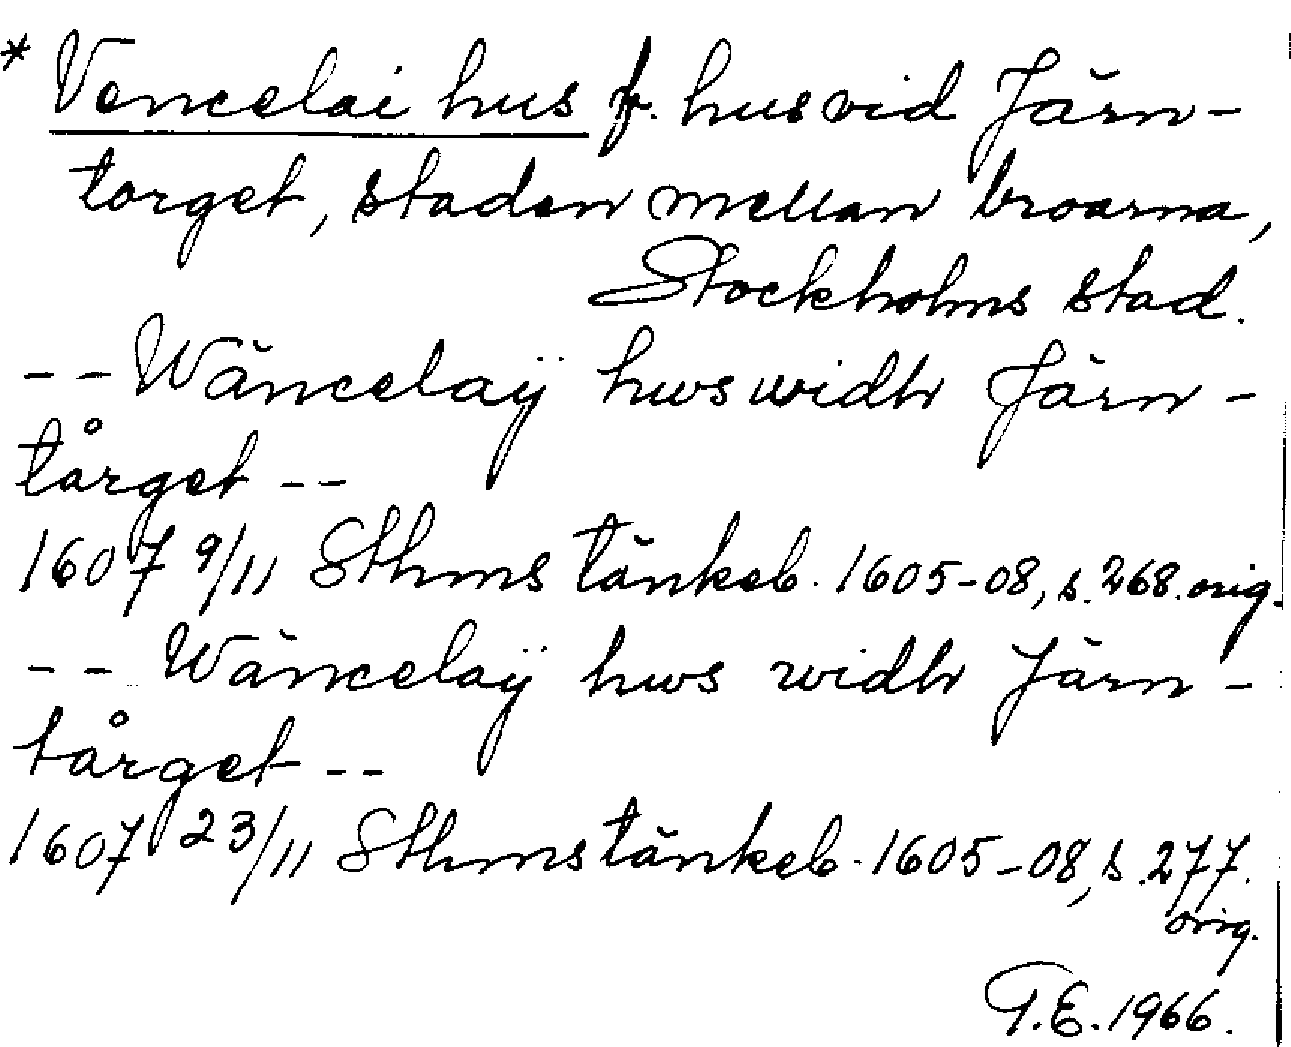 * Vencelai hus fr. hus vid Järn-
torget, staden mellan broarna,
Stockholms stad.
-- Wäncelaÿ hws widh Järn-
tårget --
1607 9/11 Sthms tänkeb. 1605-08, s. 268. orig.
-- Wäncelaÿ hws widh Järn-
tårget --
1607 23/11 Sthms tänkeb. 1605-08, s. 277.
orig.
T.E. 1966.